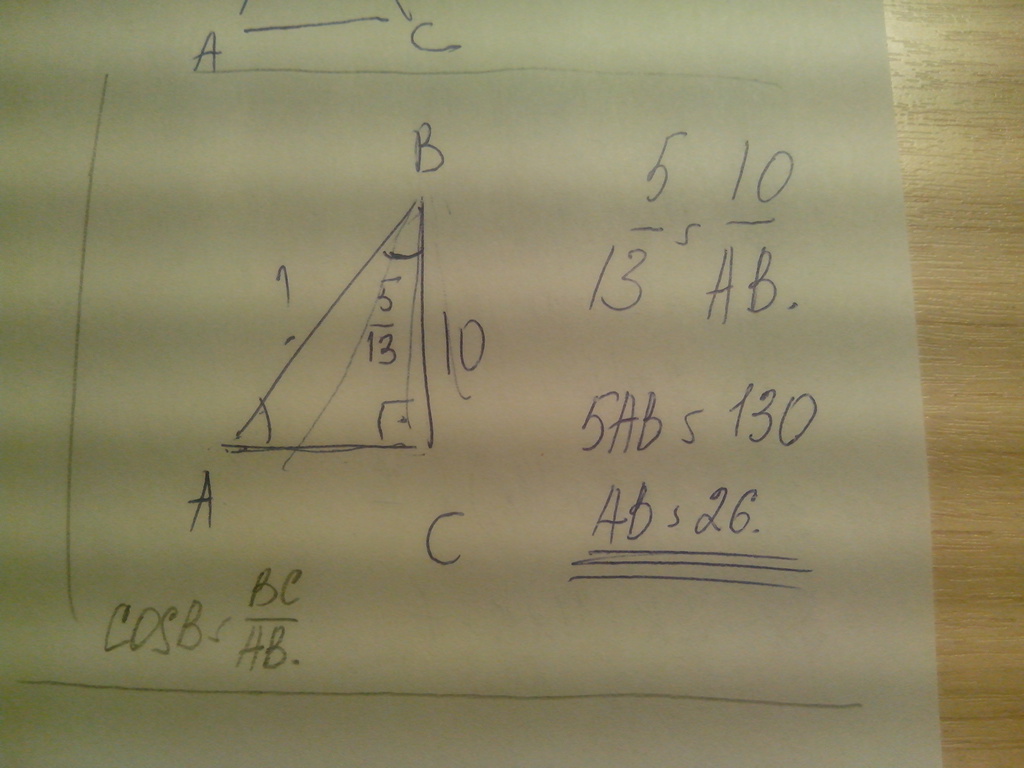 A C
B
5/13 = 10/AB.
?
5/13
10
5AB = 130
A
C
AB = 26.
COSB = BC/AB.